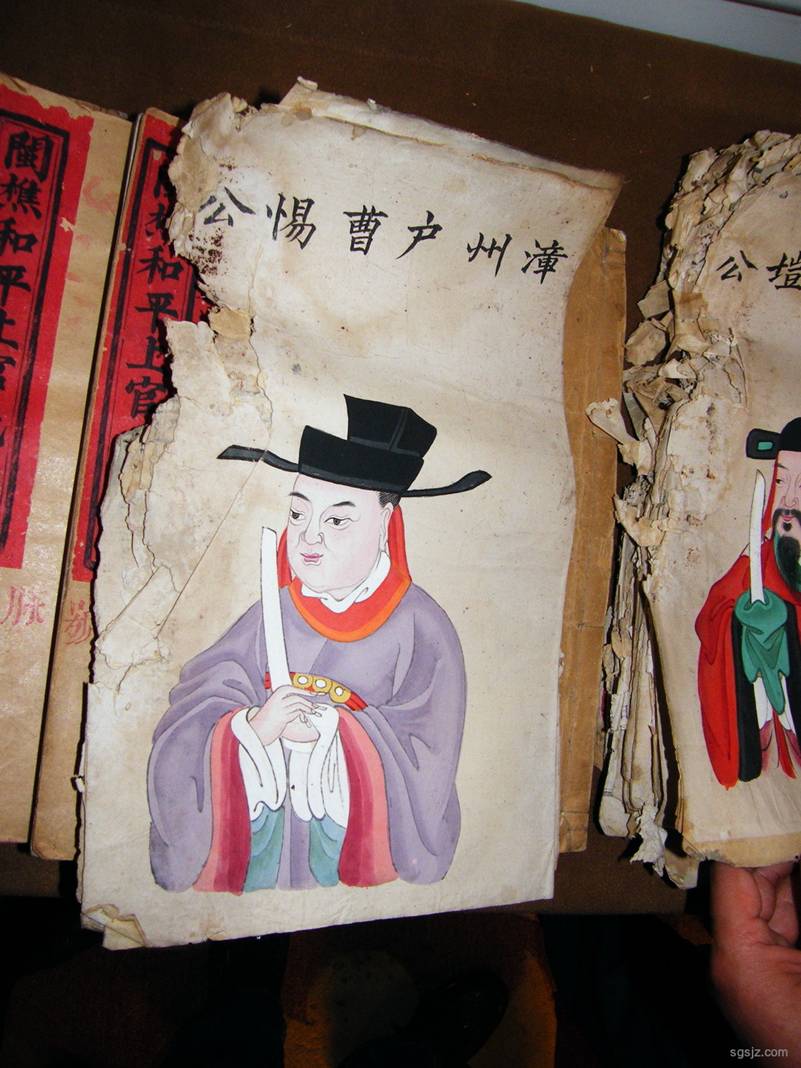 漳州户曹惕公
塏公
閩樵和平上官
和平上官
脉
sgsjz.com